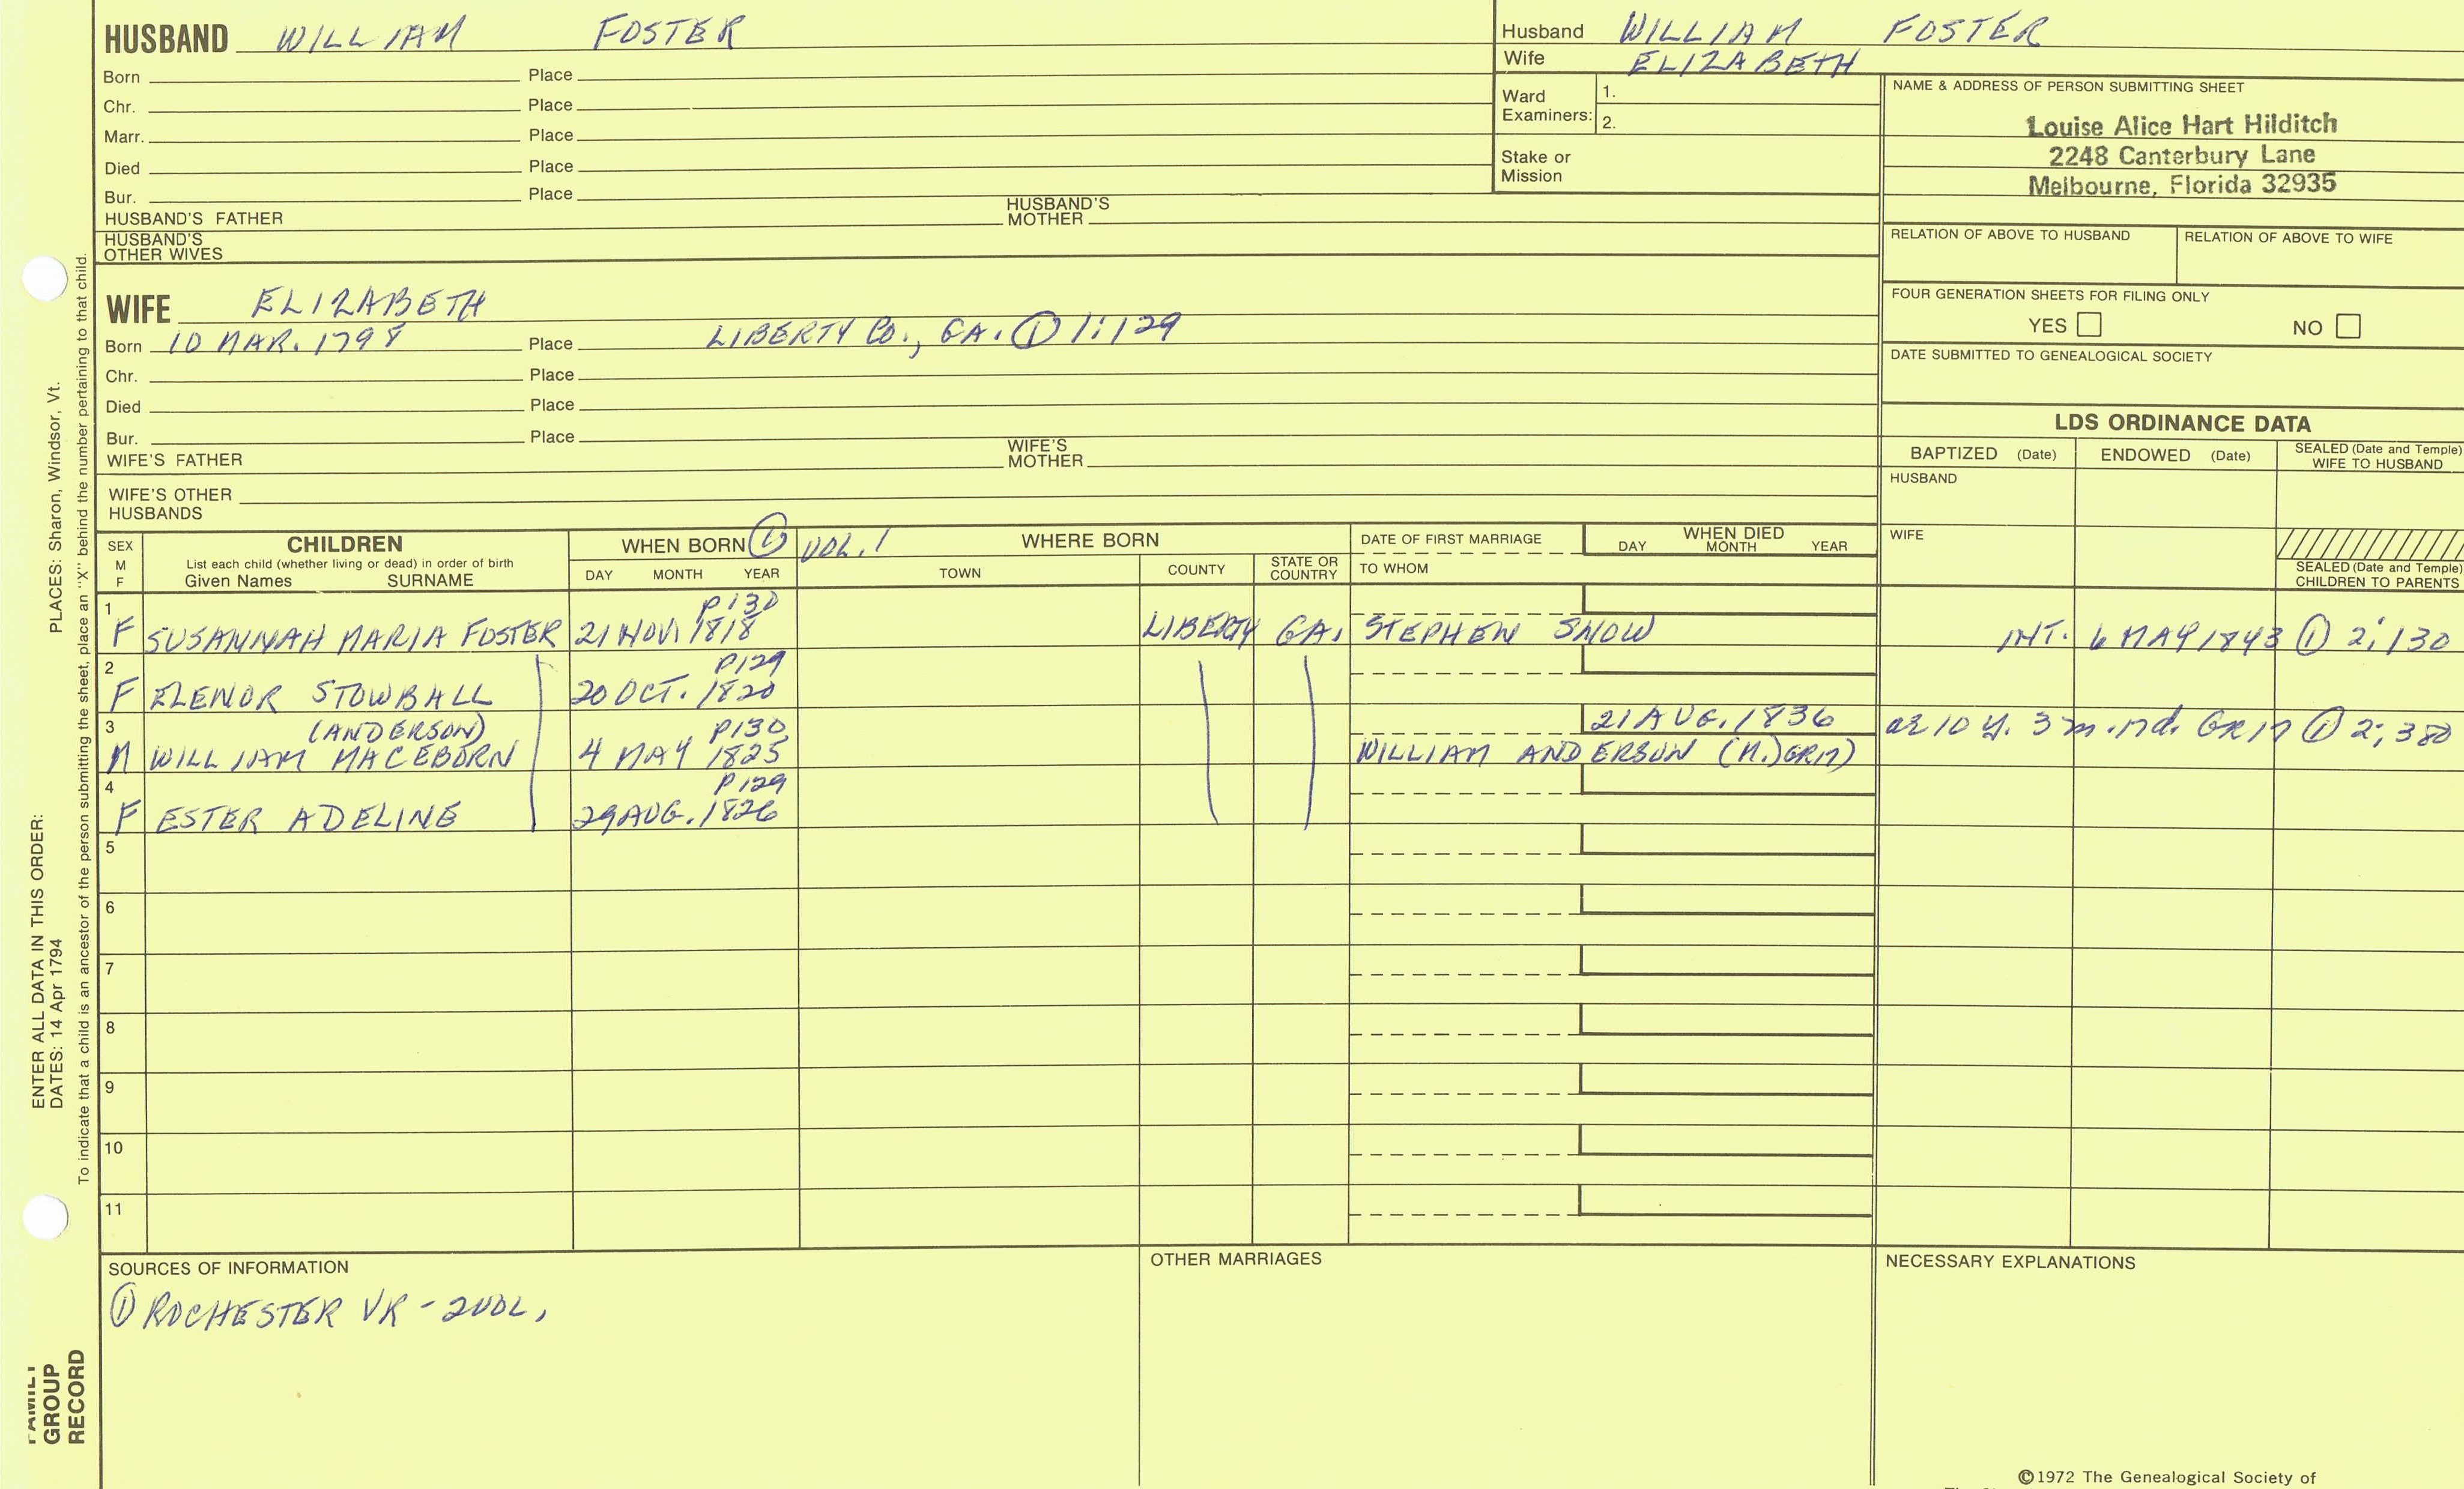 HUSBAND WILLIAM FOSTER
Born Place
Chr. Place
Marr. Place
Died Place
Bur. Place
HUSBAND'S FATHER HUSBAND'S MOTHER
HUSBAND'S OTHER WIVES
Husband WILLIAM FOSTER
Wife ELIZABETH
Ward Examiners: 1.
2.
Stake or Mission
NAME & ADDRESS OF PERSON SUBMITTING SHEET
Louise Alice Hart Hilditch
2248 Canterbury Lane
Melbourne, Florida 32935
RELATION OF ABOVE TO HUSBAND RELATION OF ABOVE TO WIFE
FOUR GENERATION SHEETS FOR FILING ONLY
YES NO
DATE SUBMITTED TO GENEALOGICAL SOCIETY
WIFE ELIZABETH
Born 10 MAR. 1798 Place LIBERTY CO., GA. ① 1:129
Chr. Place
Died Place
Bur. Place
WIFE'S FATHER WIFE'S MOTHER
WIFE'S OTHER HUSBANDS
LDS ORDINANCE DATA
BAPTIZED (Date) ENDOWED (Date) SEALED (Date and Temple) WIFE TO HUSBAND
HUSBAND
WIFE
SEALED (Date and Temple) CHILDREN TO PARENTS
SEX M F
CHILDREN
List each child (whether living or dead) in order of birth
Given Names SURNAME
WHEN BORN ① VOL. 1 WHERE BORN
DAY MONTH YEAR TOWN COUNTY STATE OR COUNTRY
DATE OF FIRST MARRIAGE
TO WHOM
WHEN DIED
DAY MONTH YEAR
1 P130
F SUSANNAH MARIA FOSTER 21 NOV. 1818 LIBERTY GA. STEPHEN SNOW INT. 6 MAY 1843 ① 2:130
2 P129
F ELENOR STOWBALL 20 OCT. 1820
3 (ANDERSON) P130 21 AUG. 1836 ae 10 y. 3 m. nd. GR17 ① 2:380
M WILLIAM MACEBORN 4 MAY 1825 WILLIAM ANDERSON (N.) GR17)
4 P129
F ESTER ADELINE 29 AUG. 1826
5
6
7
8
9
10
11
SOURCES OF INFORMATION
① ROCHESTER VR - 2 VOL.
OTHER MARRIAGES
NECESSARY EXPLANATIONS
©1972 The Genealogical Society of
PLACES: Sharon, Windsor, Vt.
ENTER ALL DATA IN THIS ORDER:
DATES: 14 Apr 1794
To indicate that a child is an ancestor of the person submitting the sheet, place an "X" behind the number pertaining to that child.
FAMILY
GROUP
RECORD